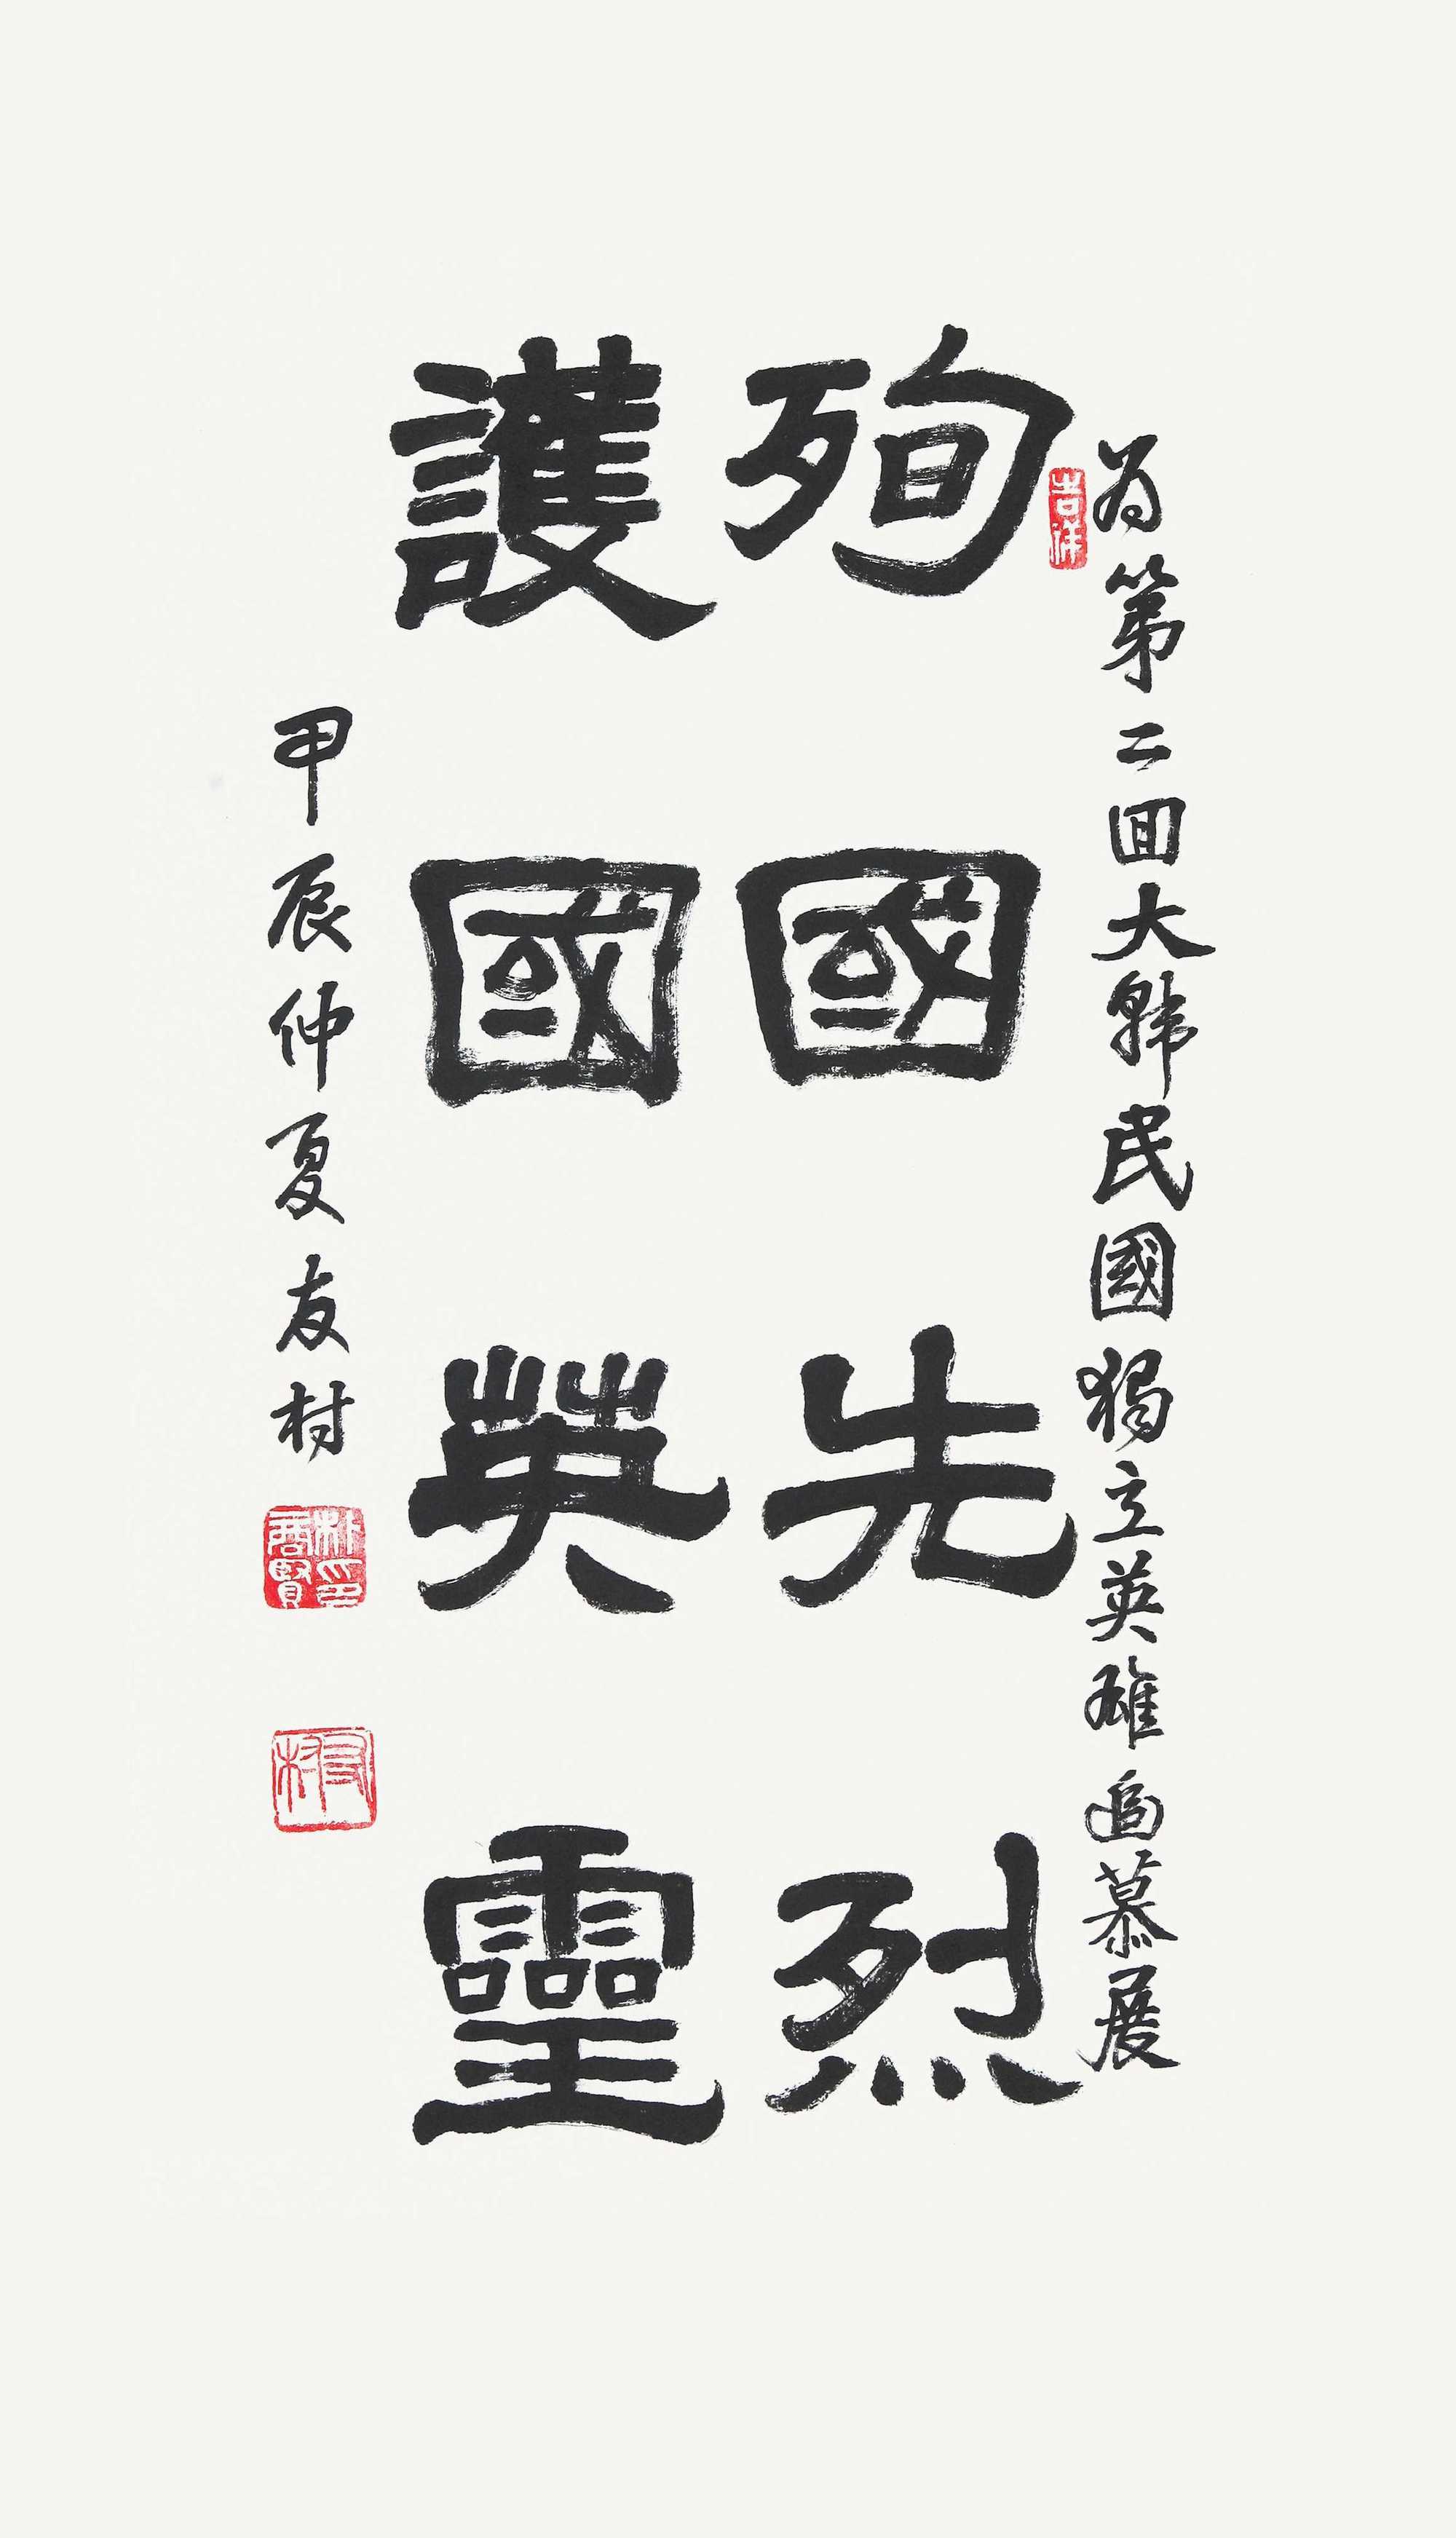 為第二回大韓民國獨立英雄追慕展
吉祥
殉國先烈
護國英靈
甲辰仲夏友村
朴印商賢
友村